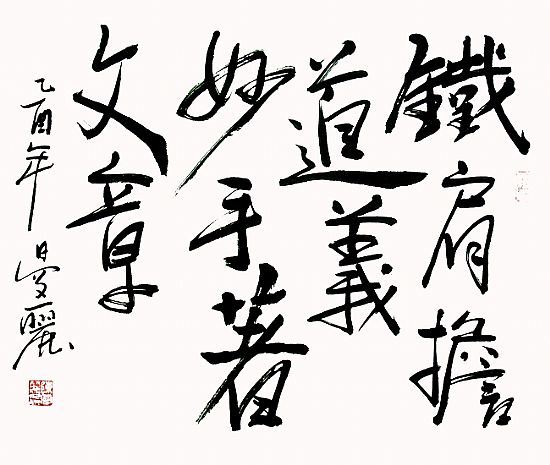 鐵肩擔
道義
妙手著
文章
乙酉年
曼麗